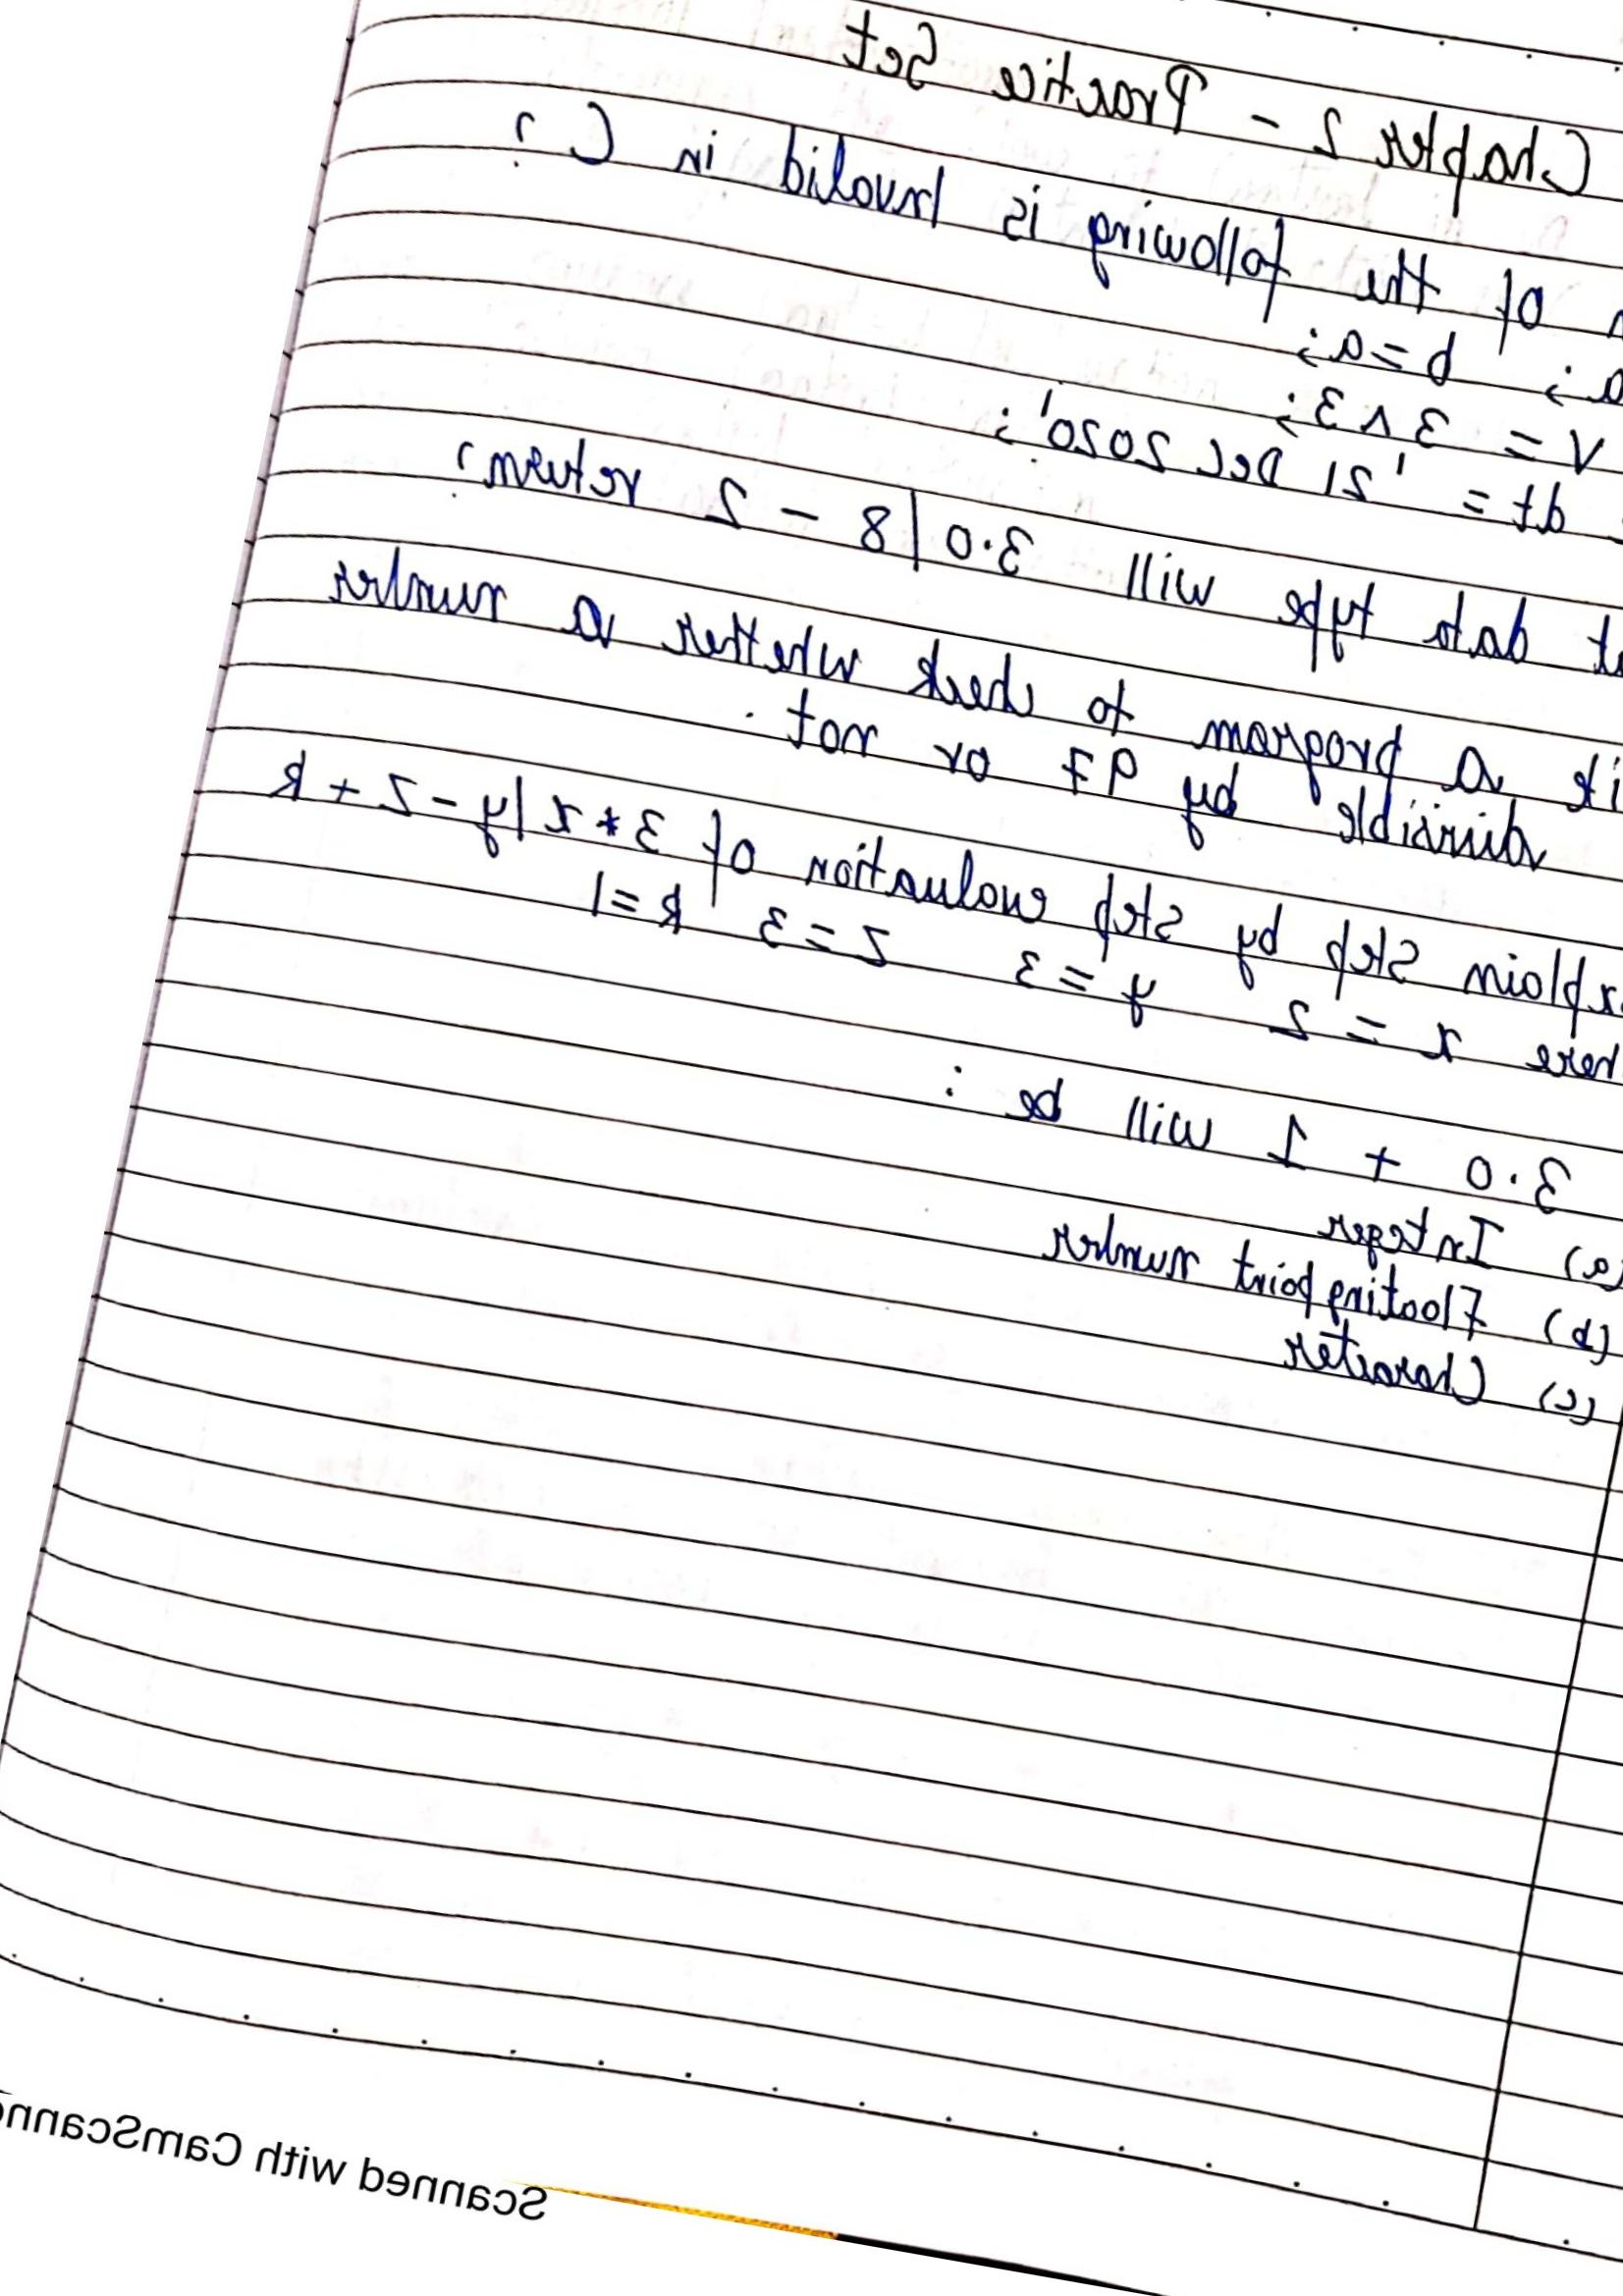 Chapter 2 - Practice Set
of the following is Invalid in C?
a; b=a;
v = 3^3;
dt = '21 Dec 2020';
data type will 3.0/8 - 2 return?
a program to check whether a number
divisible by 97 or not.
step by step evaluation of 3*x/y-z+k
x = 2 y = 3 z = 3 k = 1
3.0 + 1 will be :
(a) Integer
(b) Floating point number
(c) Character
Scanned with